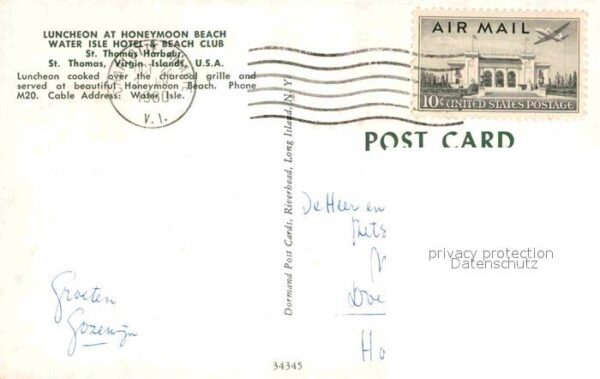 LUNCHEON AT HONEYMOON BEACH
WATER ISLE HOTEL & BEACH CLUB
St. Thomas Harbour,
St. Thomas, Virgin Islands, U.S.A.
Luncheon cooked over the charcoal grille and
served at beautiful Honeymoon Beach. Phone
M20. Cable Address: Water Isle.
1960
V.I.
AIR MAIL
10¢ UNITED STATES POSTAGE
POST CARD
Dormand Post Cards, Riverhead, Long Island, N.Y.
De Heer en
privacy protection
Datenschutz
Doe
Ho
Groeten
Gozewijn
34345